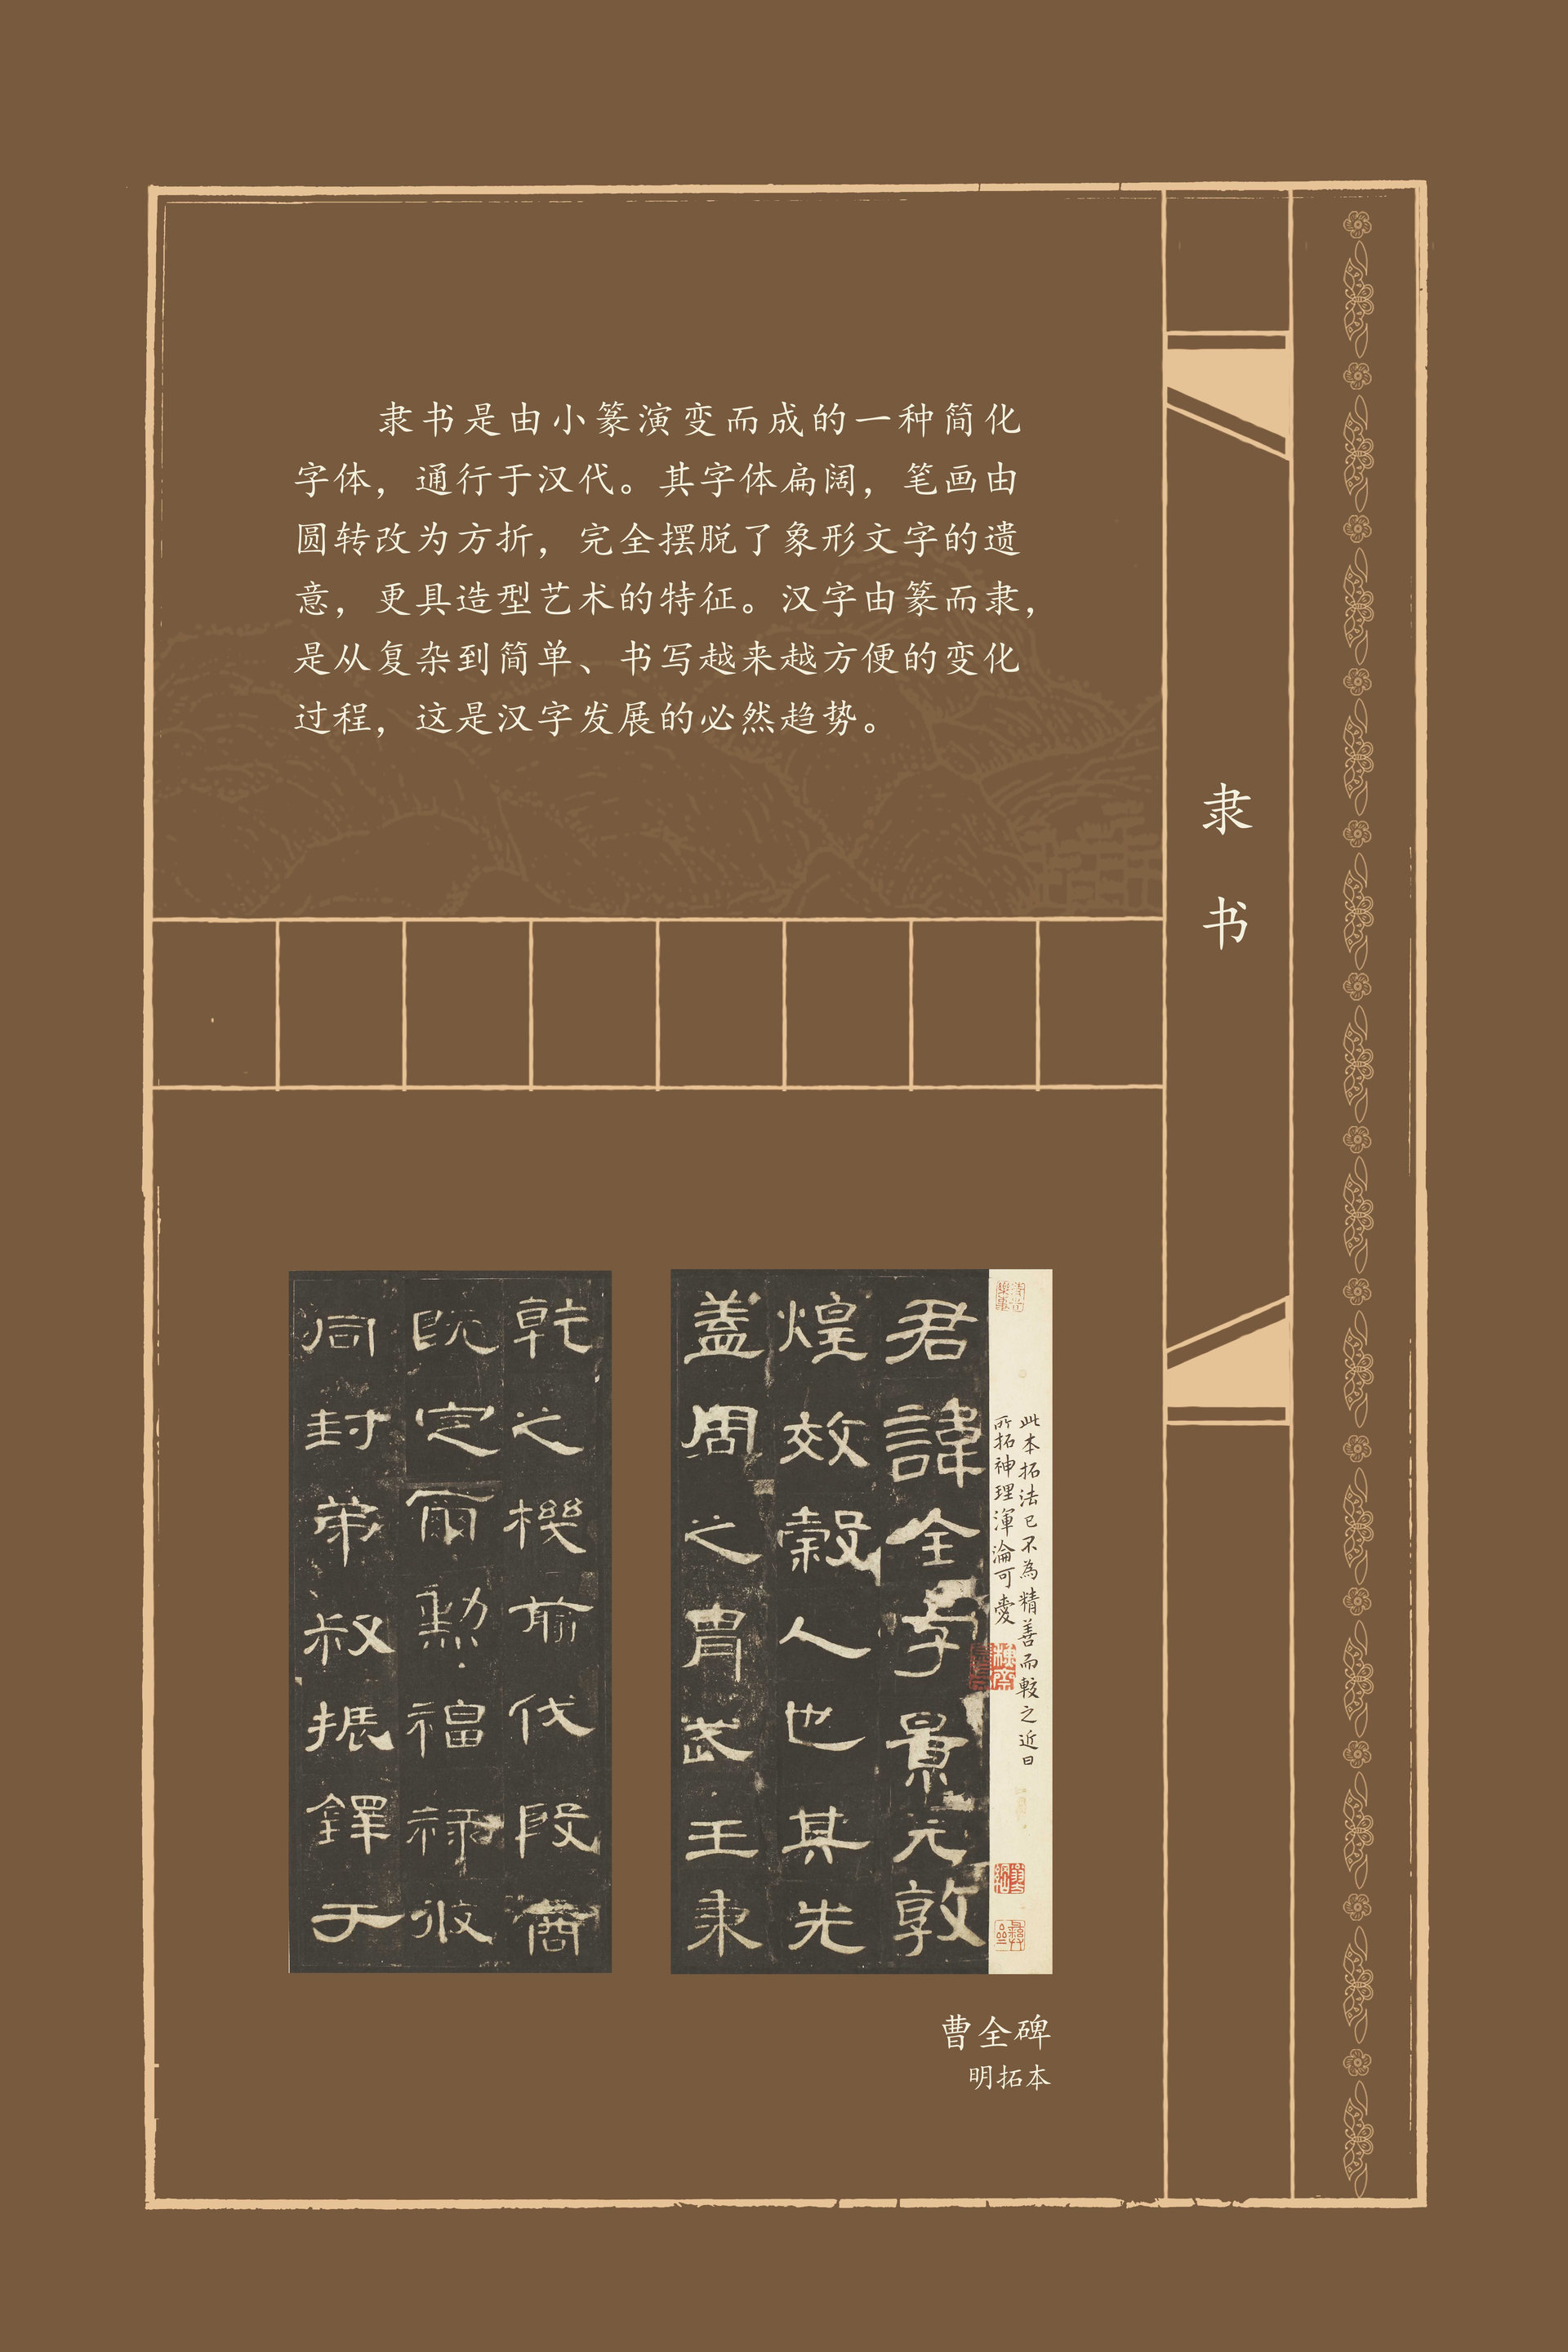 隶书
隶书是由小篆演变而成的一种简化
字体，通行于汉代。其字体扁阔，笔画由
圆转改为方折，完全摆脱了象形文字的遗
意，更具造型艺术的特征。汉字由篆而隶，
是从复杂到简单、书写越来越方便的变化
过程，这是汉字发展的必然趋势。
此本拓法已不為精善而較之近日
所拓神理渾淪可愛
君諱全字景元敦
煌效穀人也其先
蓋周之胄武王秉
乾之機翦伐殷商
既定爾勳福祿攸
同封弟叔振鐸于
曹全碑
明拓本